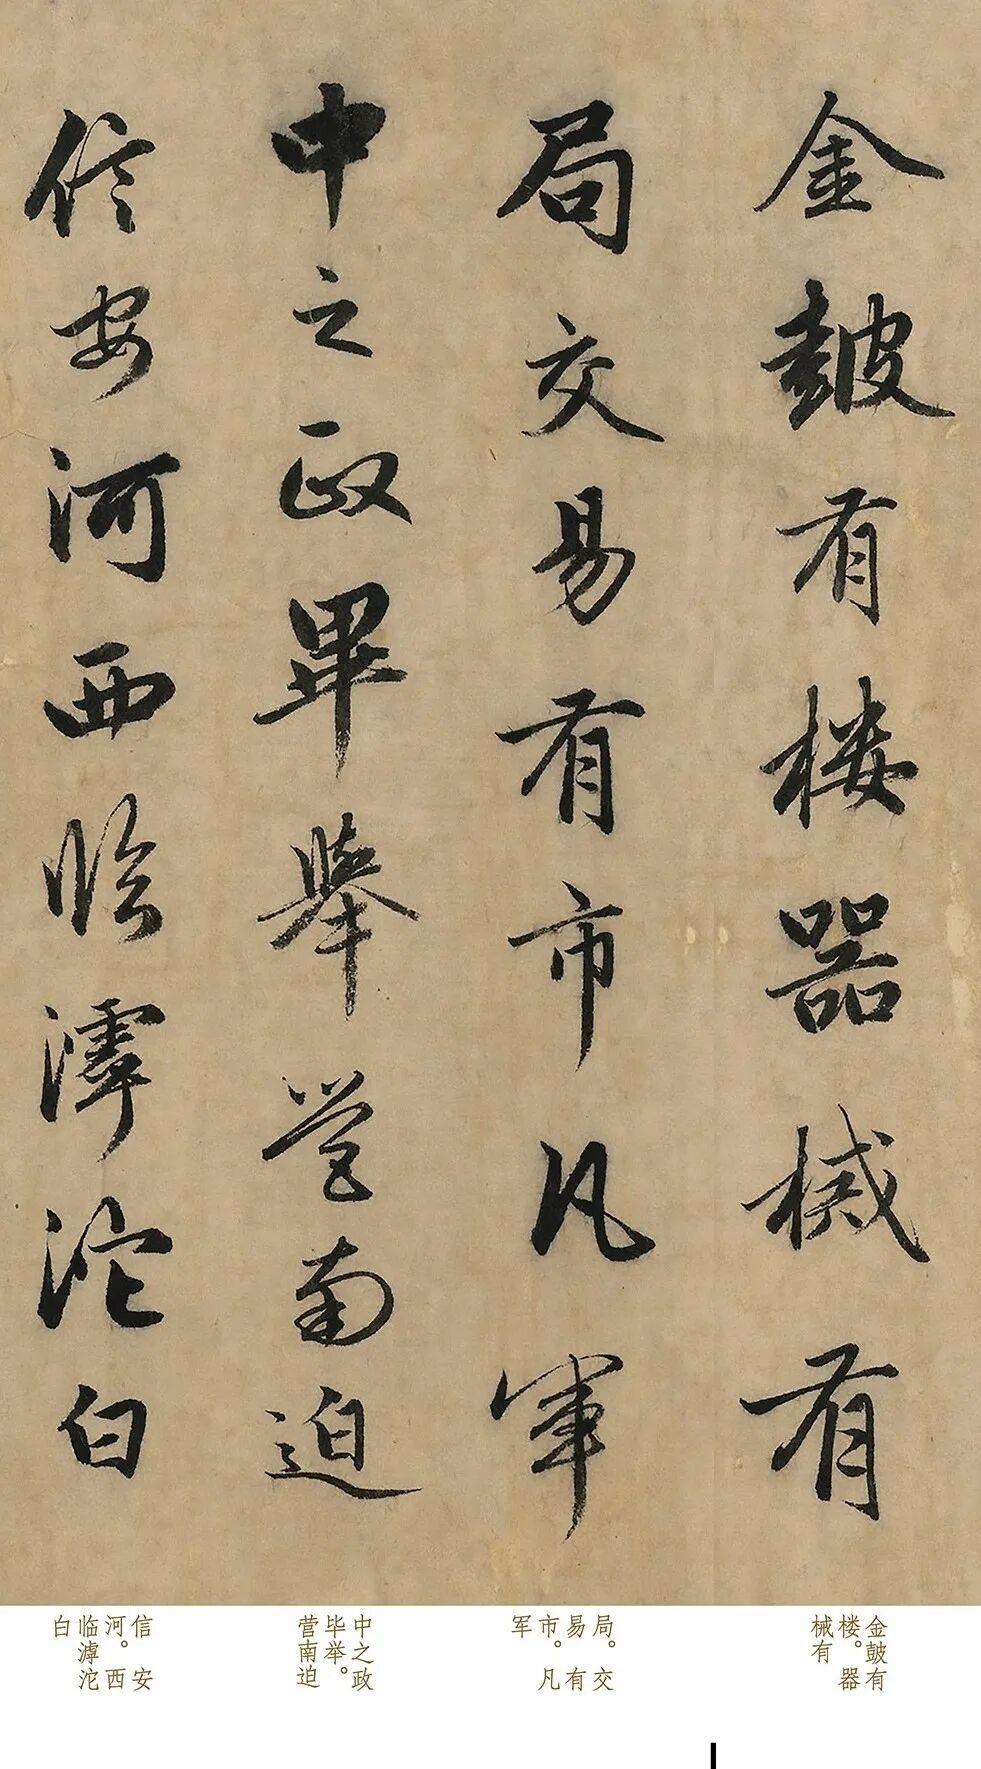 金皷有楼器械有
局交易有市凡軍
中之政畢舉營南迫
信安河西臨滹沱白
金皷有
楼。器
械有
局。交
易有
市。凡
军
中之政
毕举。
营南迫
信安
河。西
临滹沱
白